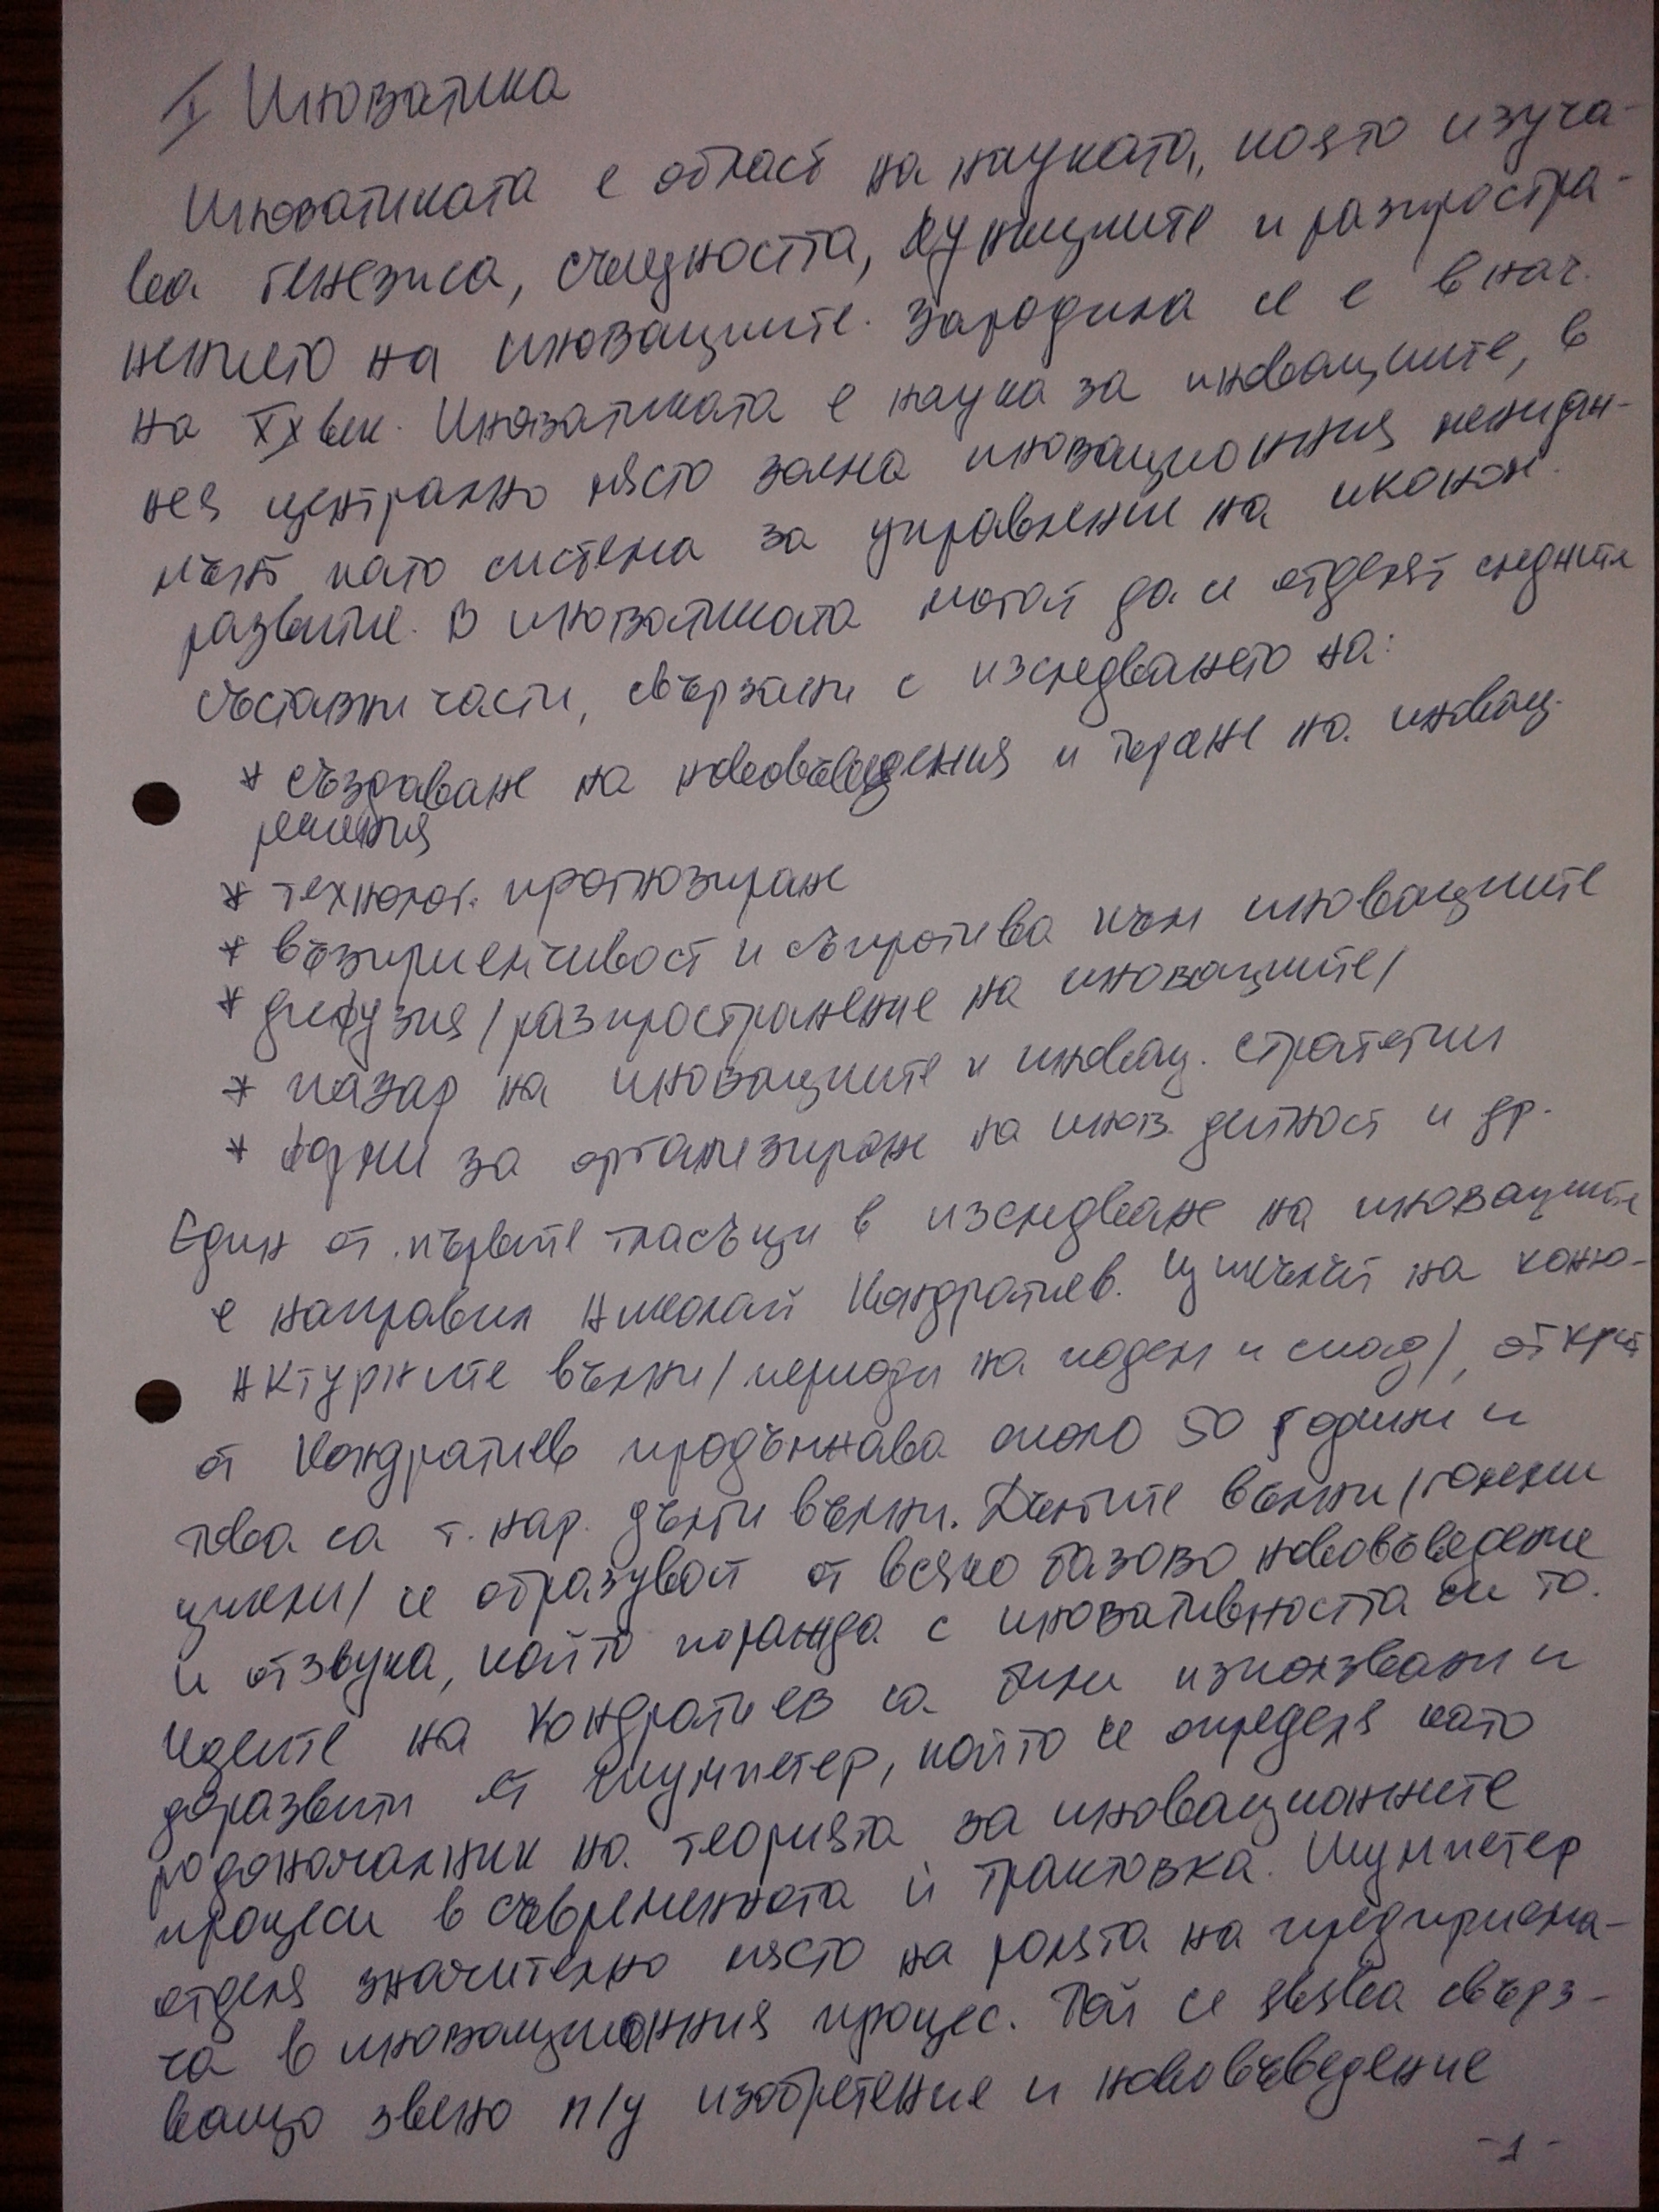 I Иноватика
Иноватиката е област на науката, която изуча-
ва генезиса, същността, функциите и разпростра-
нението на иновациите. Зародила се е в нач.
на XX век. Иноватиката е наука за иновациите, в
нея централно място заема иновационния мениджм-
мънт като система за управление на иконом.
развитие. В иноватиката могат да се отделят следните
съставни части, свързани с изследването на:
* създаване на нововъведения и търсене на иновац.
решения
* технолог. прогнозиране
* възприемчивост и съпротива към иновациите
* дифузия /разпространение на иновациите/
* пазар на иновациите и иновац. стратегии
* форми за организиране на инов. дейност и др.
Един от първите тласъци в изследване на иновациите
е направил Николай Кондратиев. Цикълът на коню-
нктурните вълни /периоди на подем и спад/, открит
от Кондратиев продължава около 50 години и
това са т. нар. дълги вълни. Дългите вълни /големи
цикли/ се образуват от всяко базово нововъведение
и отзвука, който поражда с иновативността си то.
Идеите на Кондратиев са били използвани и
доразвити от Шумпетер, който се определя като
родоначалник на теорията за иновационните
процеси в съвременната ѝ трактовка. Шумпетер
отделя значително място на ролята на предприема-
ча в иновационния процес. Той се явява свърз-
ващо звено м/у изобретение и нововъведение
-1-